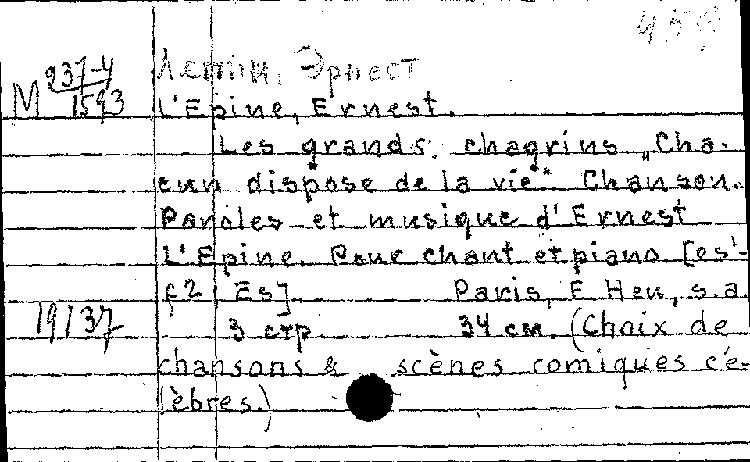 459
M 937-4
1593
Лепин, Эрнест
L'Epine, Ernest.
Les grands chagrins „Cha-
cun dispose de la vie". Chanson.
Paroles et musique d'Ernest
L'Epine. Pour chant et piano [es'-
f2 Es] Paris, E Heu, s.a.
19137 3 стр 34 см. (Choix de
chansons & scènes comiques cé-
lèbres.)